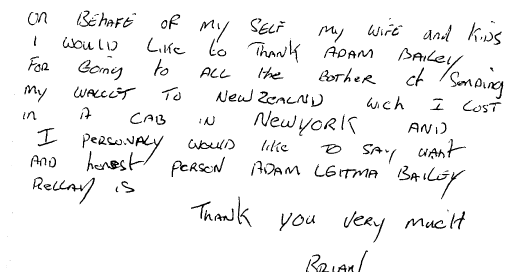 ON BEHAFE OF MY SELF MY WIFE and KIDS
I WOULD LIKE to THANK ADAM BAILEY
FOR GOING to ALL the BOTHER of SENDING
MY WALLET TO NEWZEALND WICH I LOST
IN A CAB IN NEWYORK AND
I PERSONALY WOULD like TO SAY WHAT
AND honest PERSON ADAM LEITMA BAILEY
RELLAY IS
THANK YOU VERY MUCH
BRIAN